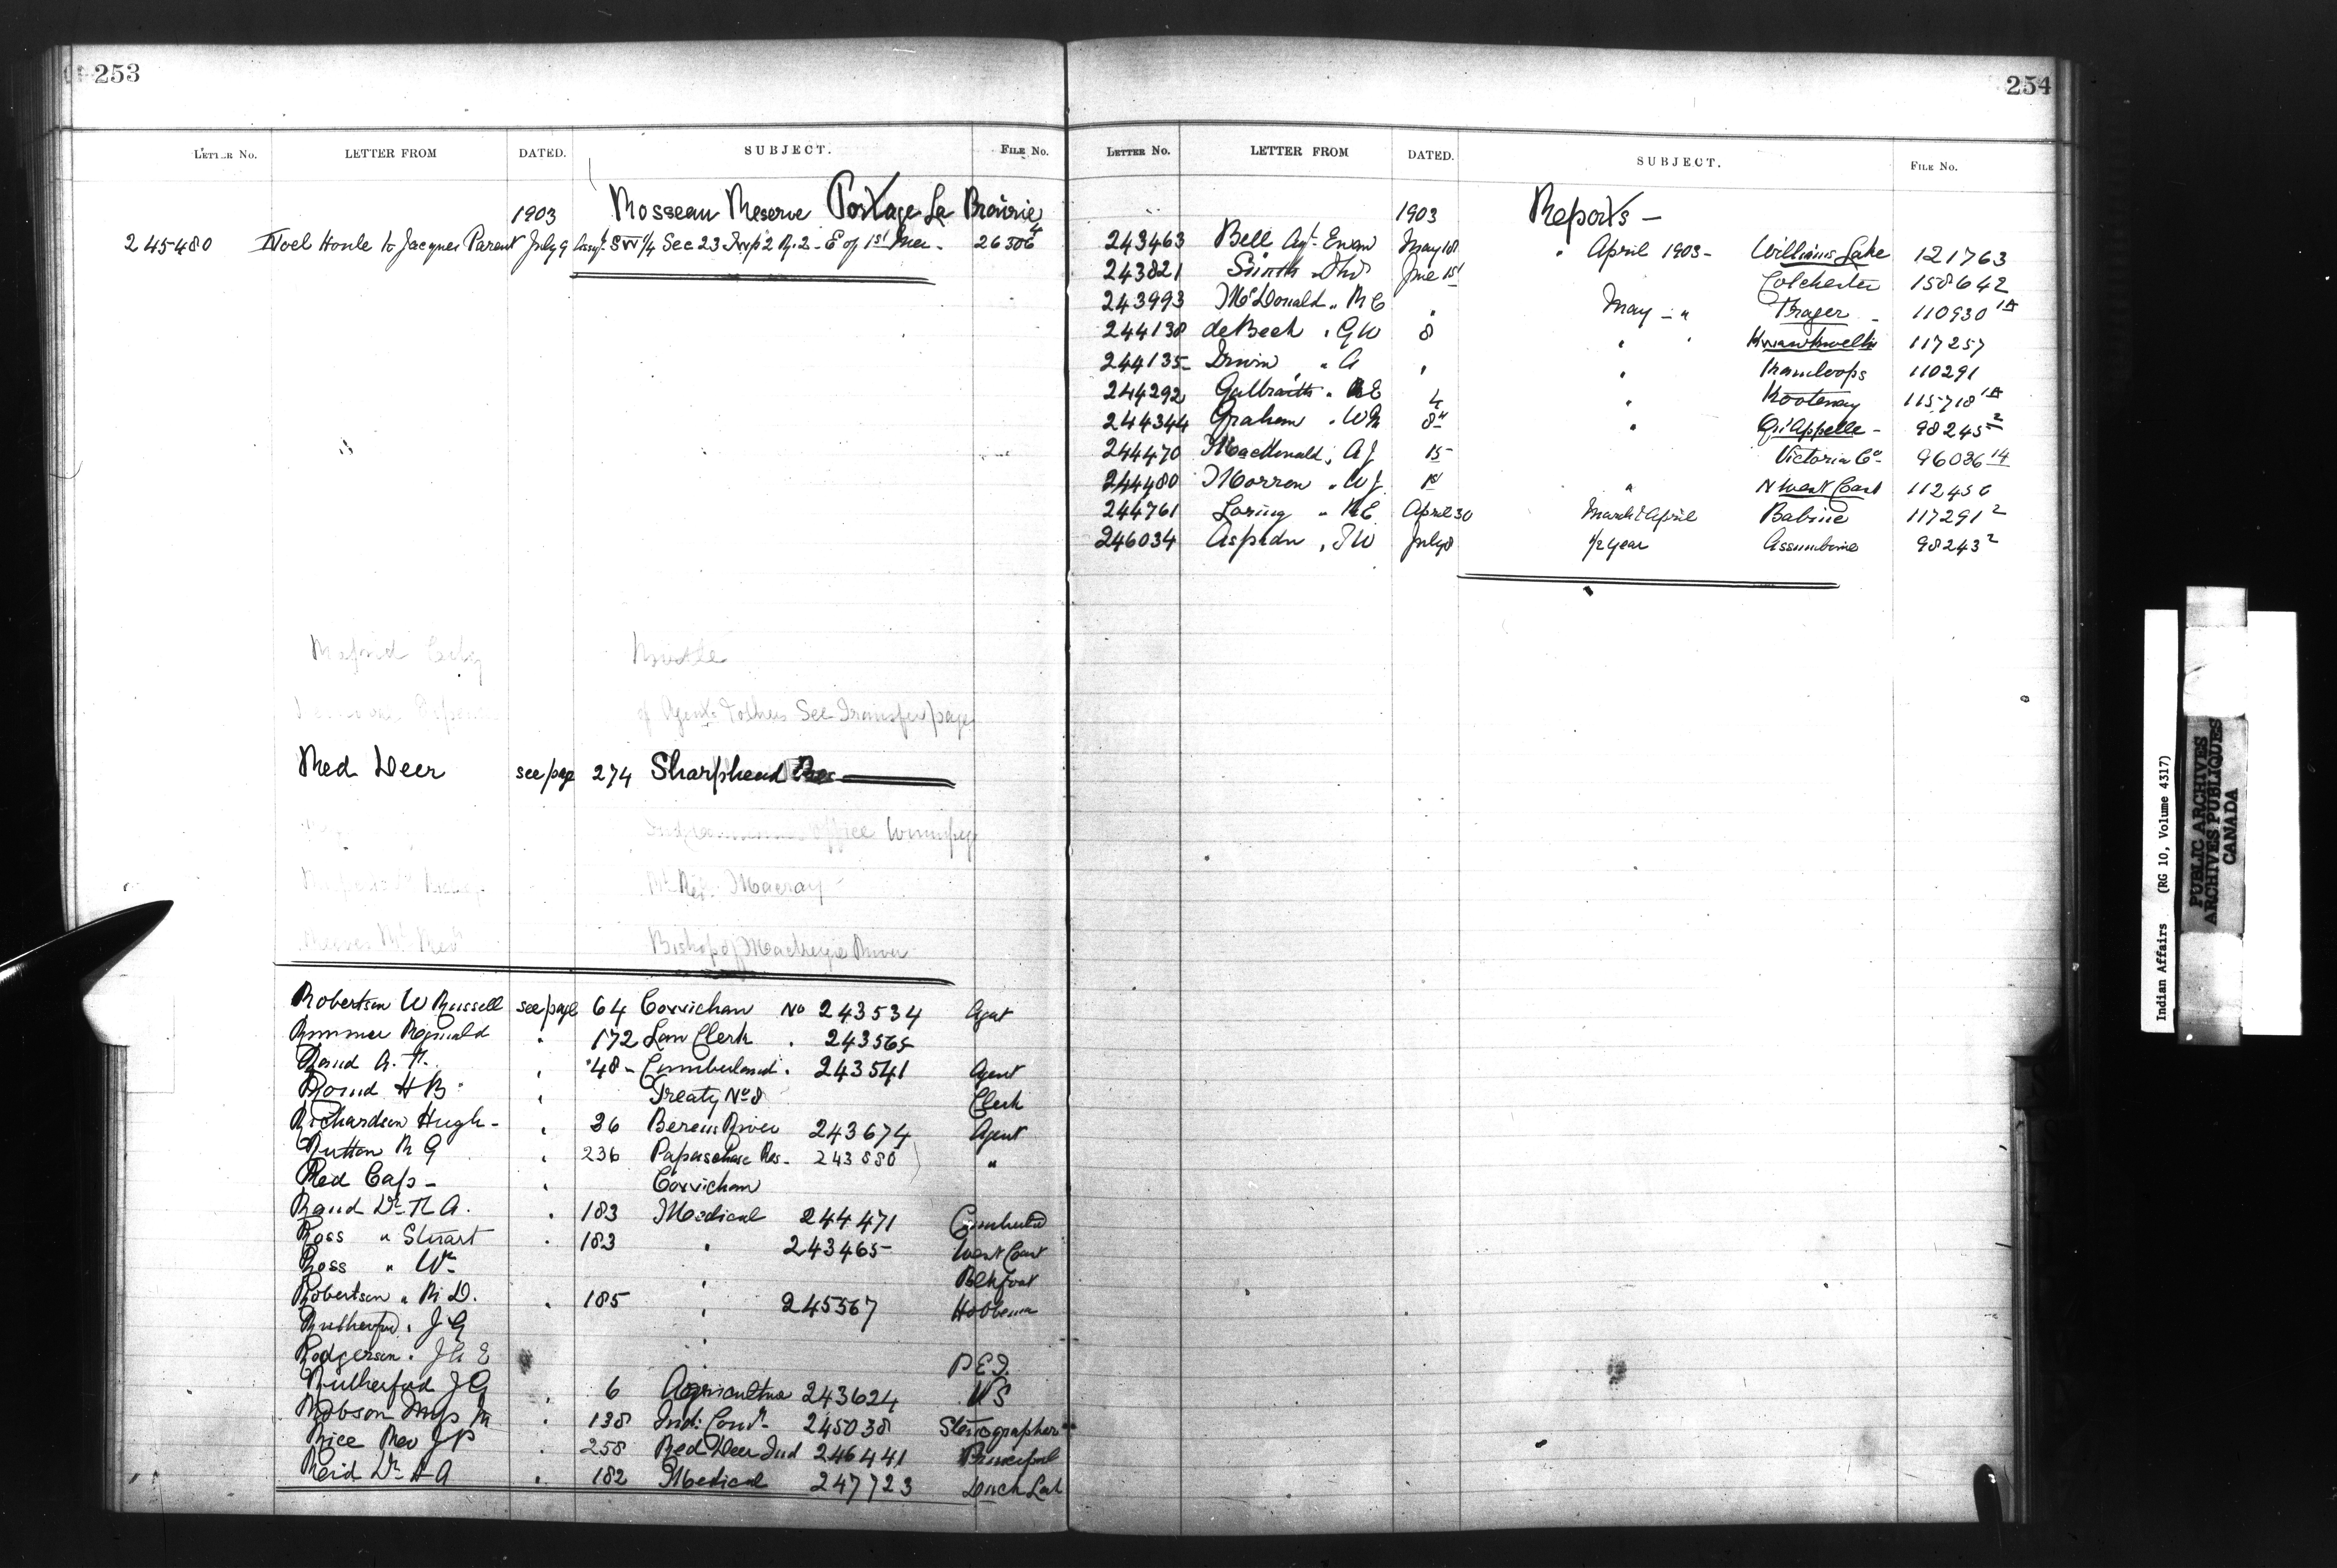 253
LETTER No. LETTER FROM DATED. SUBJECT. FILE No.
1903 Rosseau Reserve Portage La Prairie
245480 Noel Houle to Jacques Parent July 9 Assgt. SW 1/4 Sec 23 Twp 2 R. 2 - E of 1st Mer - 26306 4
Birtle
of Agents & others See Transfer page
Red Deer see page 274 Sharphead Res
office Winnipeg
Bishop of Mackenzie River
Robertson W Russell see page 64 Cowichan No 243534 Agent
Rimmer Reginald " 172 Law Clerk " 243565
Rand A. T. " 48 - Cumberland " 243541 Agent
Round H B " Treaty No 8 Clerk
Richardson Hugh - " 36 Berens River 243674 Agent
Rutton R G " 236 Papaschase Res - 243880 "
Red Cap - " Cowichan
Rand Dr. T A. " 183 Medical 244471 Cumberld
Ross " Stuart " 183 " 243465 West Coast
Ross " Wm Blkfoot
Robertson " R. D. " 185 " 245367 Hobbema
Rutherford " J G
Rodgerson " J A E " P E I.
Rutherford J G " 6 Agriculture 243624 V S
Robson Miss M " 138 Ind: Comr. 245038 Stenographer
Rice Rev J P " 258 Red Deer Ind 246441 Principal
Reid Dr. A A " 182 Medical 247723 Duck Lak
254
LETTER No. LETTER FROM DATED. SUBJECT. FILE No.
1903 Reports -
243463 Bell Agt. Ewan May 18 " April 1903 - Williams Lake 121763
243821 Smith " June 1st Colchester 158642
243993 McDonald " R C " May - " Fraser - 110930 1A
244138 deBeck " G W 8 " Kwawkwelth 117257
244135 Irwin " A " " Kamloops 110291
244292 Galbraith " R E 4 " Kootenay 115718 1A
244344 Graham " W M 8th " Qu'Appelle - 98245 2
244470 MacDonald " A J 15 " Victoria Co - 96036 14
244480 Morrow " W J 1st " N West Coast 112456
244761 Loring " R E April 30 March & April Babine 117291 2
246034 Aspdin " T W July 8 1/2 year Assiniboine 98243 2
Indian Affairs (RG 10, Volume 4317)
PUBLIC ARCHIVES
ARCHIVES PUBLIQUES
CANADA